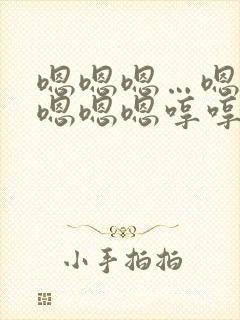 嗯嗯嗯…嗯
嗯嗯嗯哼哼
小手拍拍